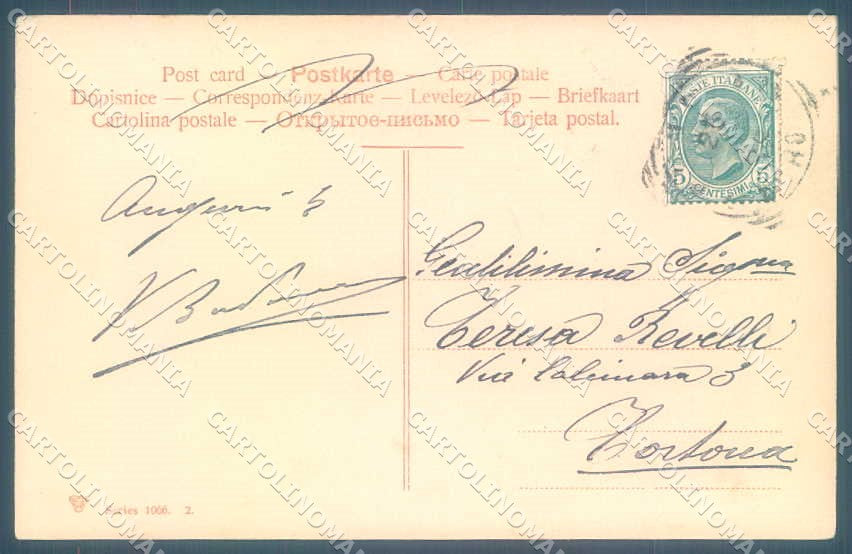 Post card — Postkarte — Carte postale
Dopisnice — Correspondenz-Karte — Levelező-Lap — Briefkaart
Cartolina postale — Открытое-письмо — Tarjeta postal.
POSTE ITALIANE
5 5
CENTESIMI
Auguri
Gentilissima Sigͫᵃ
Teresa Revelli
Via Calcinara 3
Tortona
Series 1066. 2.
CARTOLINOMANIA